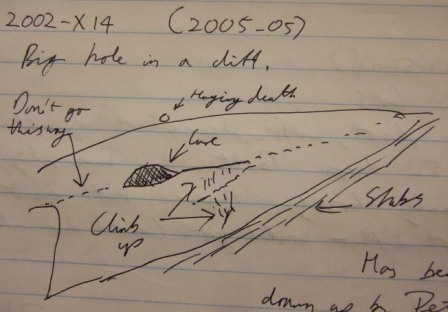 2002-X14 (2005-05)
Big hole in a cliff.
Hanging death
Don't go
this way
Cave
Climb
up
Slabs
Has be
drawn up by Pet